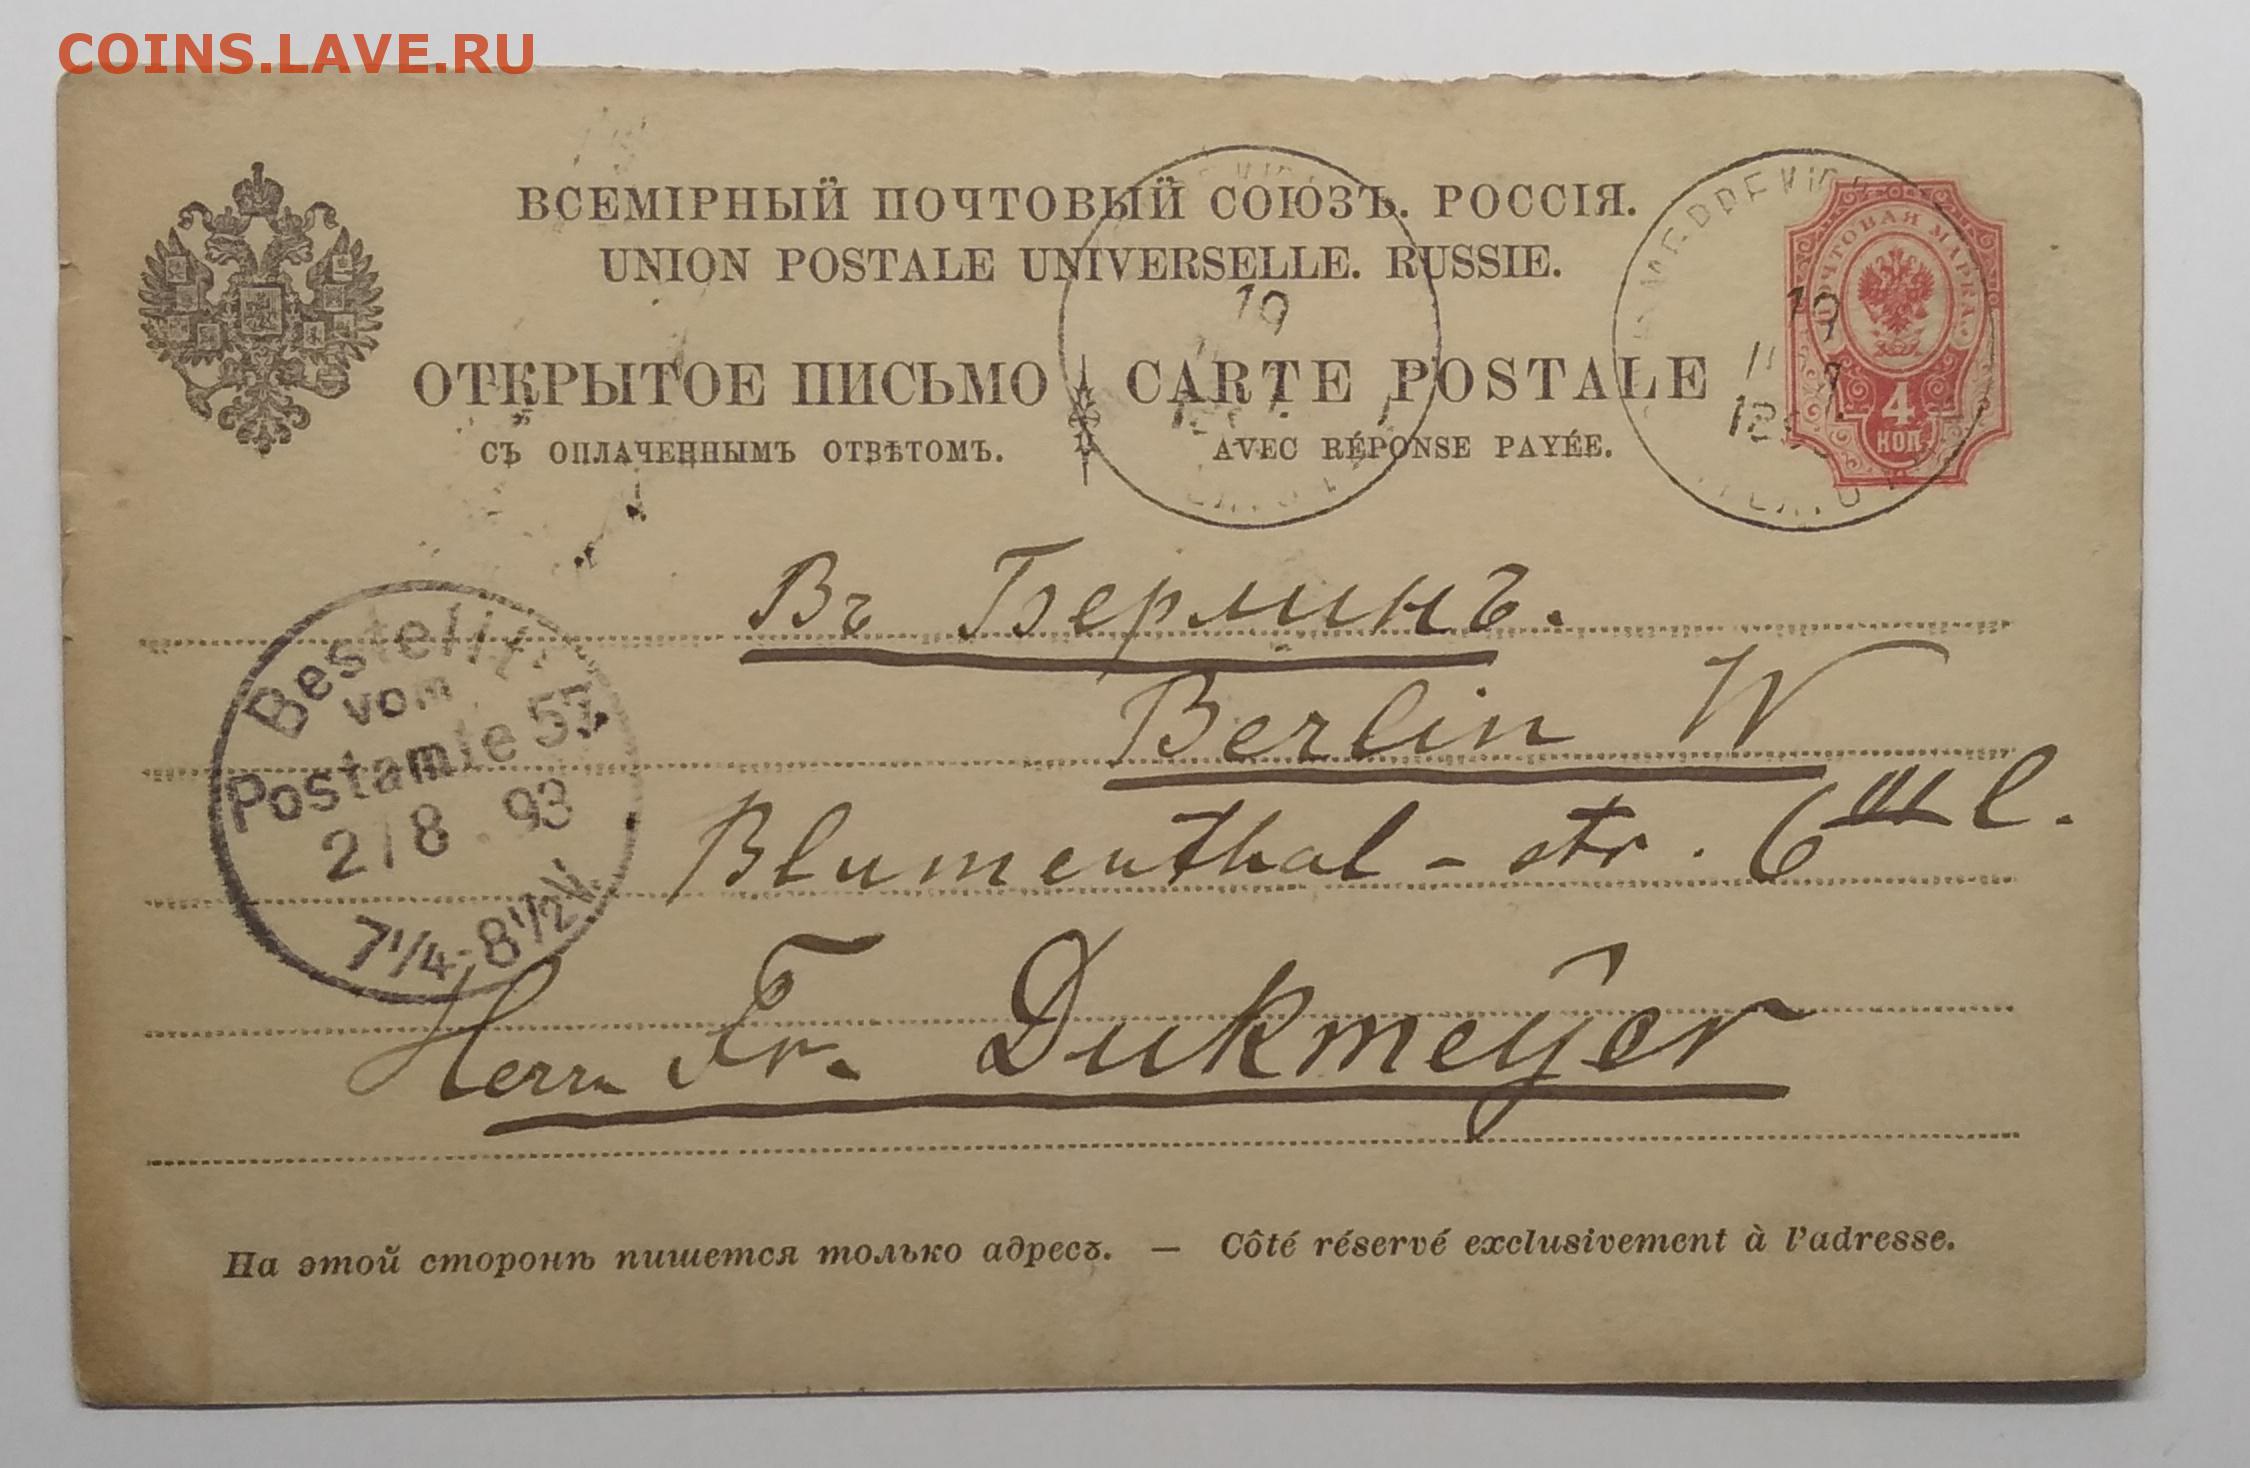 COINS.LAVE.RU
ВСЕМІРНЫЙ ПОЧТОВЫЙ СОЮЗЪ. РОССІЯ.
UNION POSTALE UNIVERSELLE. RUSSIE.
ОТКРЫТОЕ ПИСЬМО CARTE POSTALE
СЪ ОПЛАЧЕННЫМЪ ОТВѢТОМЪ. AVEC RÉPONSE PAYÉE.
19
19
ПОЧТОВАЯ МАРКА
4
КОП.
Въ Берлинъ.
Berlin W
Blumenthal-str. 6 III l.
Herrn Fr. Dukmeyer
Bestellt
vom
Postamte 57
2/8.93
7¼-8½V.
На этой сторонѣ пишется только адресъ. — Côté réservé exclusivement à l'adresse.